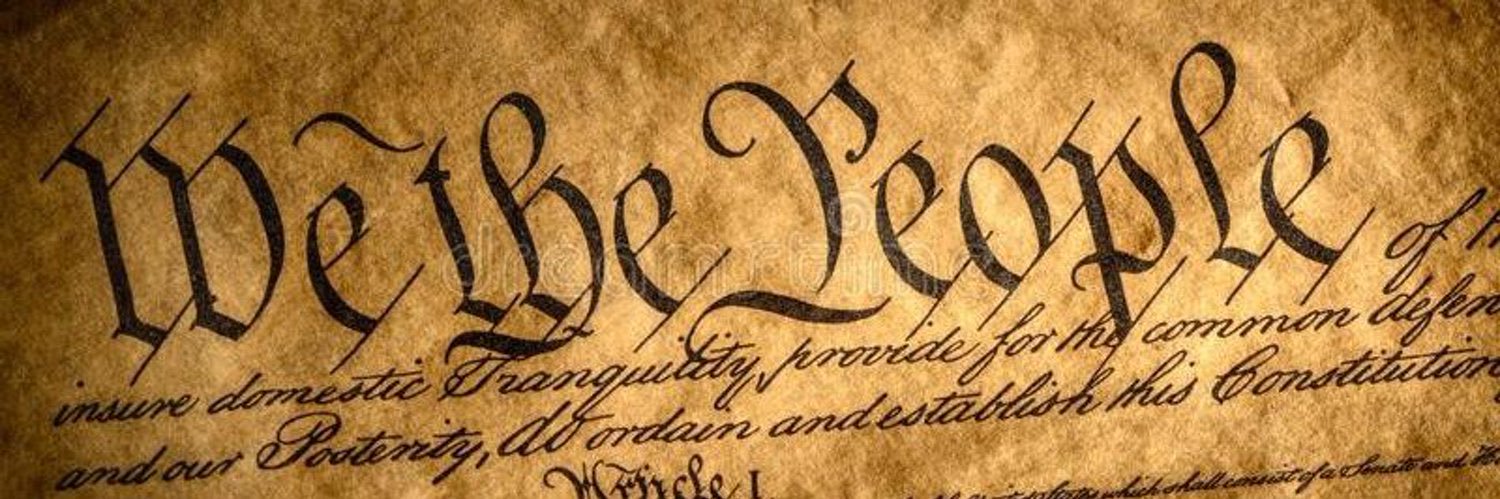 We the People of
insure domestic Tranquility, provide for the common defen
and our Posterity, do ordain and establish this Constitution
Article I
which shall consist of a Senate and
dreamstime